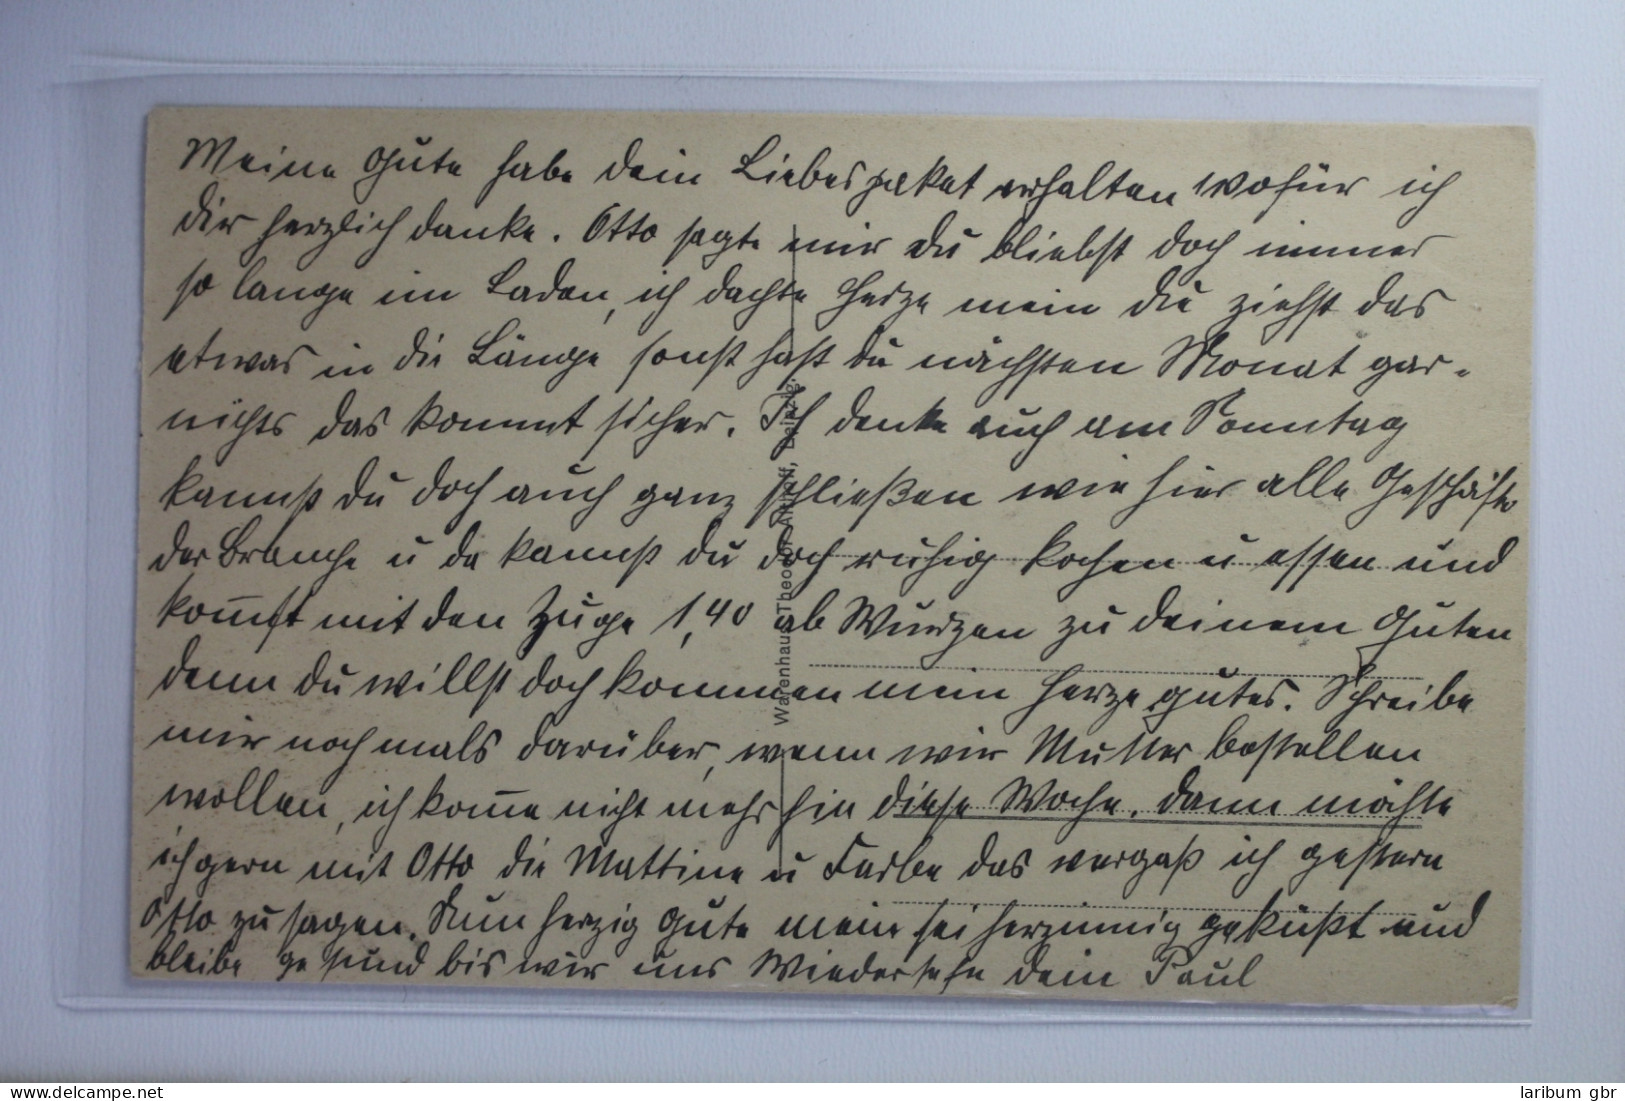 Meine Gute habe dein Liebespaket erhalten wofür ich
dir herzlich danke. Otto sagte mir du bliebst doch immer
so lange im Laden, ich dachte Herze mein du ziehst das
etwas in die Länge sonst hast du nächsten Monat gar-
nichts das kommt sicher. Ich denke auch am Sonntag
kannst du doch auch ganz schließen wie hier alle Geschäfte
der Branche u da kannst du doch ruhig kochen u essen und
kom̅st mit den Zuge 1,40 ab Wurzen zu deinem Guten
denn du willst doch kommen mein Herze gutes. Schreibe
mir nochmals darüber, wenn wir Mutter bestellen
wollen, ich kom̅e nicht mehr hin diese Woche. Dann möchte
ich gern mit Otto die u Farbe das vergaß ich gestern
Otto zu sagen. Nun herzig Gute mein sei herzinnig geküßt und
bleibe gesund bis wir uns Wiedersehn dein Paul
Warenhaus Theodor Althoff, Leipzig.
laribum gbr